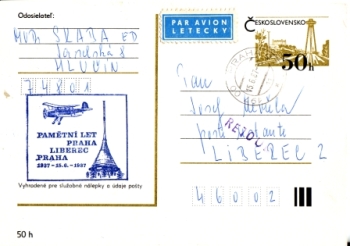 Odosielateľ:
MUDr ŠKAPA ED
HLUČÍN
74801
PAR AVION
LETECKY
ČESKOSLOVENSKO
50 h
PAMĚTNÍ LET
PRAHA
LIBEREC
PRAHA
1937 - 15.6. - 1987
Vyhradené pre služobné nálepky a údaje pošty
Pan
Josef
poste restante
RETOUR
LIBEREC 2
46002
50 h